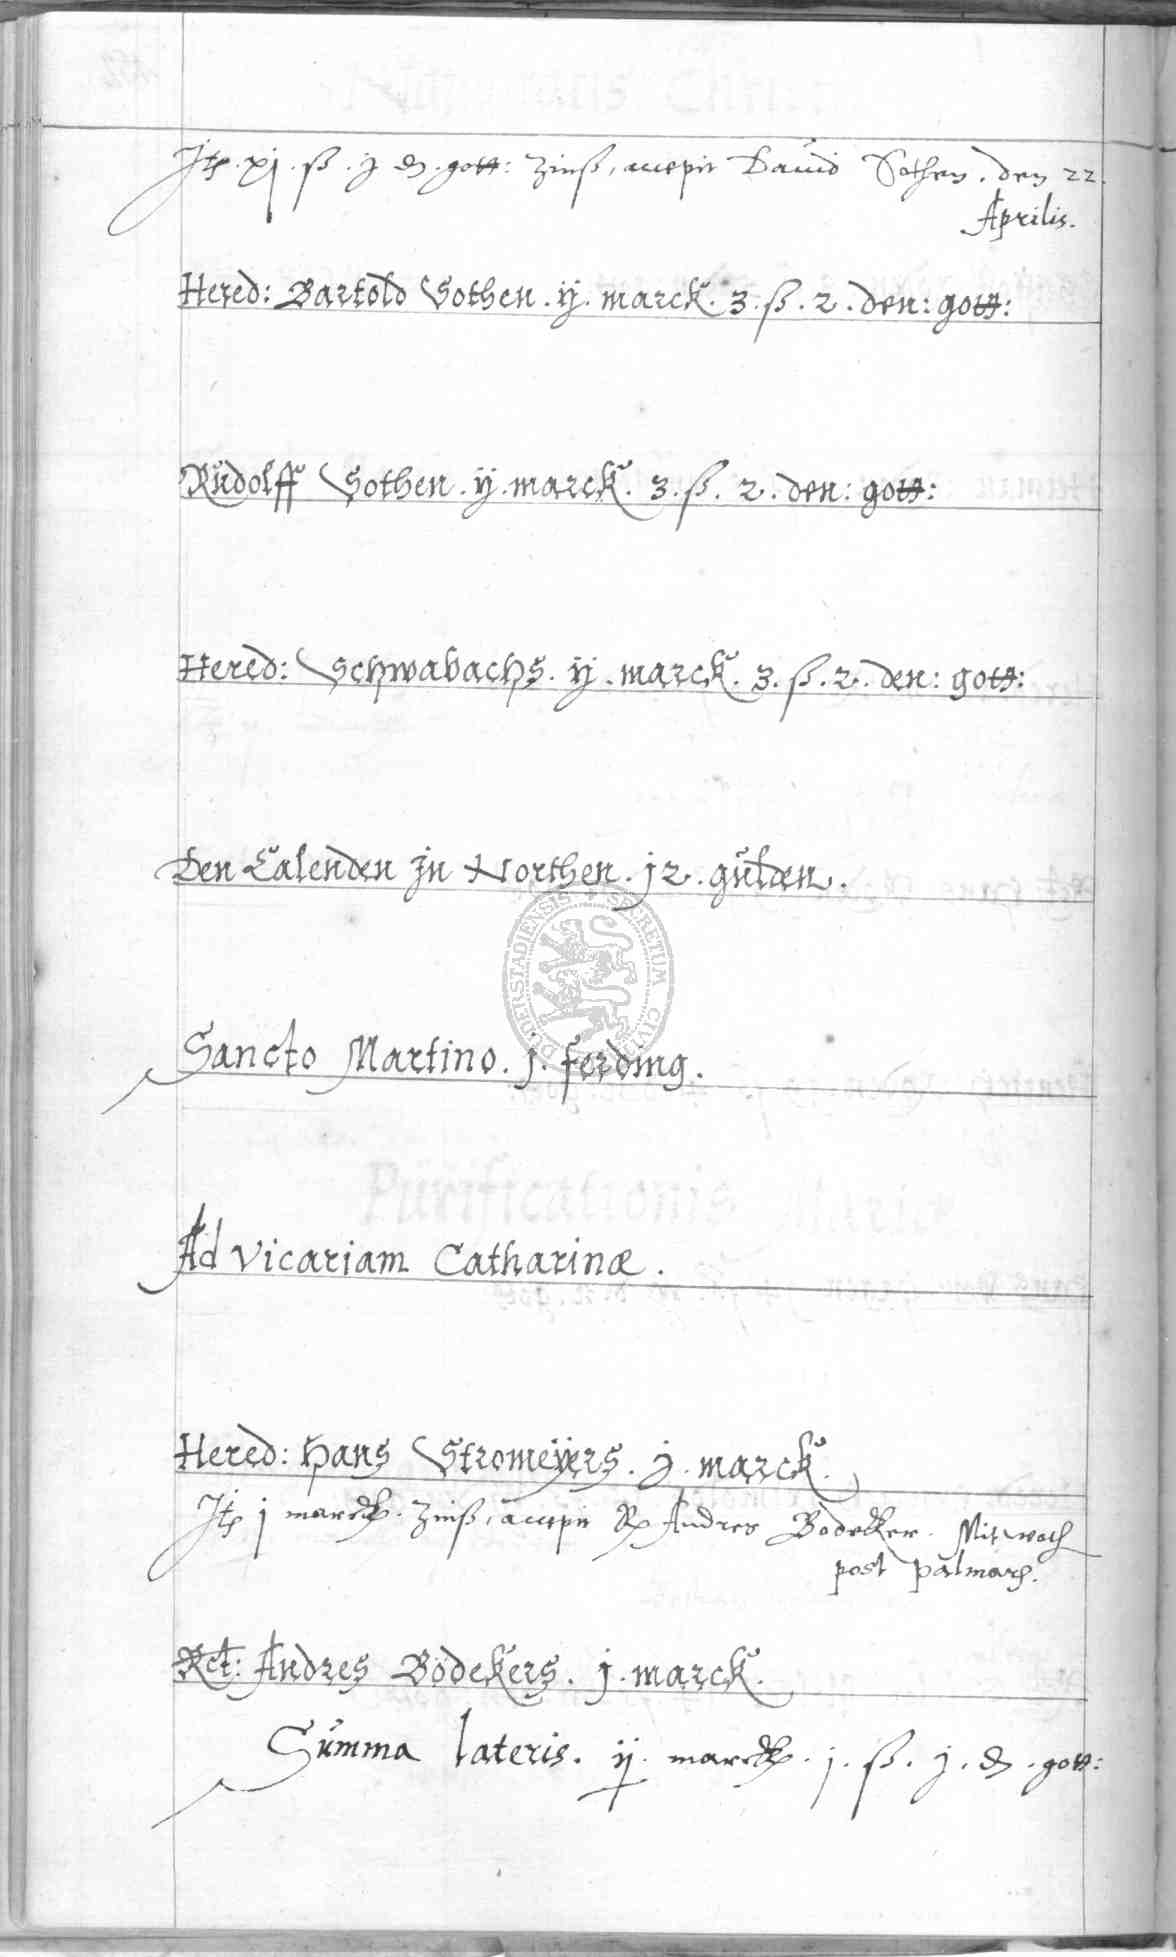 Jtẽ . xj . ß . j ₰ . gott: Zinß, accepit Dauid Sothen . den 22.
Aprilis.
Hered: Bartold Sothen . ij . marck . 3 . ß . 2 . den: gott:
Rudolff Sothen . ij . marck . 3 . ß . 2 . den: gott:
Hered: Schwabachs . ij . marck . 3 . ß . 2 . den: gott:
Den Calenden jn Northen . j2 . gulden .
DUDERSTADIENSIS SECRETUM CIVIT
Sancto Martino . j . ferding .
Ad Vicariam Catharinæ .
Hered: Hans Stromeÿers . j . marck .
Jtẽ j marck . Zinß, accepit R Andres Bodeker . Mitwoch
post palmarum .
Rct: Andres Bodekers . j . marck .
Summa lateris . ij . marck . j . ß . j . ₰ . gott:
Purificationis Mariæ